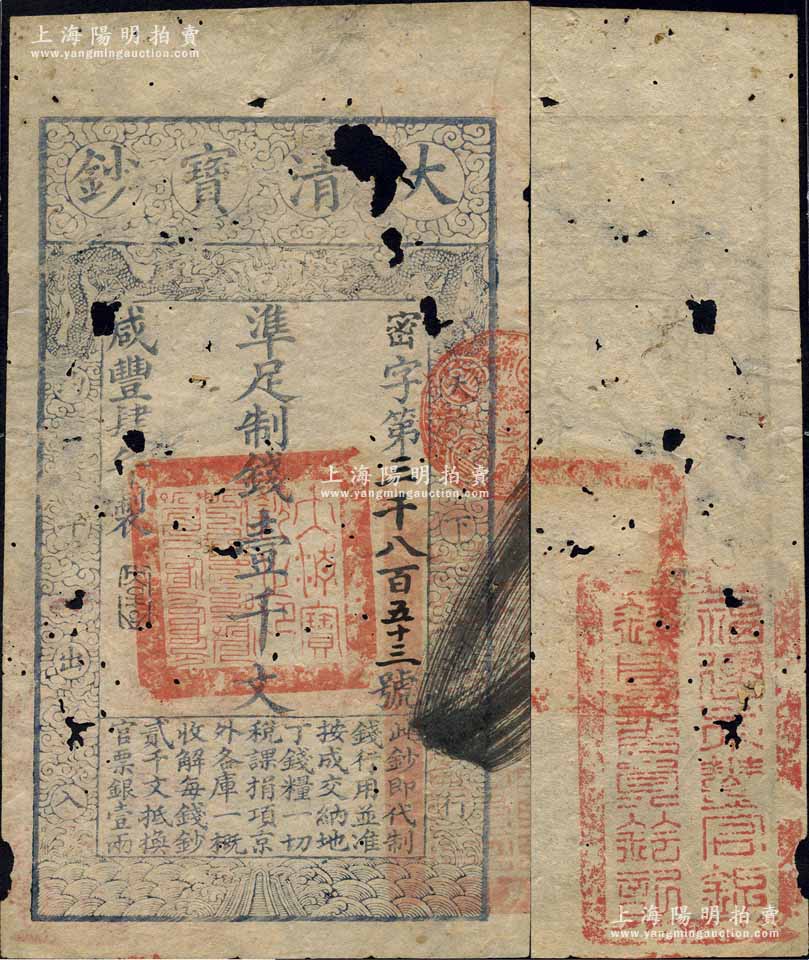 上海陽明拍賣
www.yangmingauction.com
大清寶鈔
密字第二千八百五十三號
準足制錢壹千文
咸豐肆年製
此鈔即代制
錢行用並准
按成交納地
丁錢糧一切
稅課捐項京
外各庫一概
收解每錢鈔
貳千文抵換
官票銀壹兩
天
下
行
出
入
大清寶
上海陽明拍賣
www.yangmingauction.com
上海陽明拍賣
www.yangmingauction.com